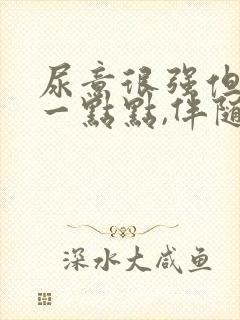 尿意很强但
一點點,伴随
深水大咸鱼